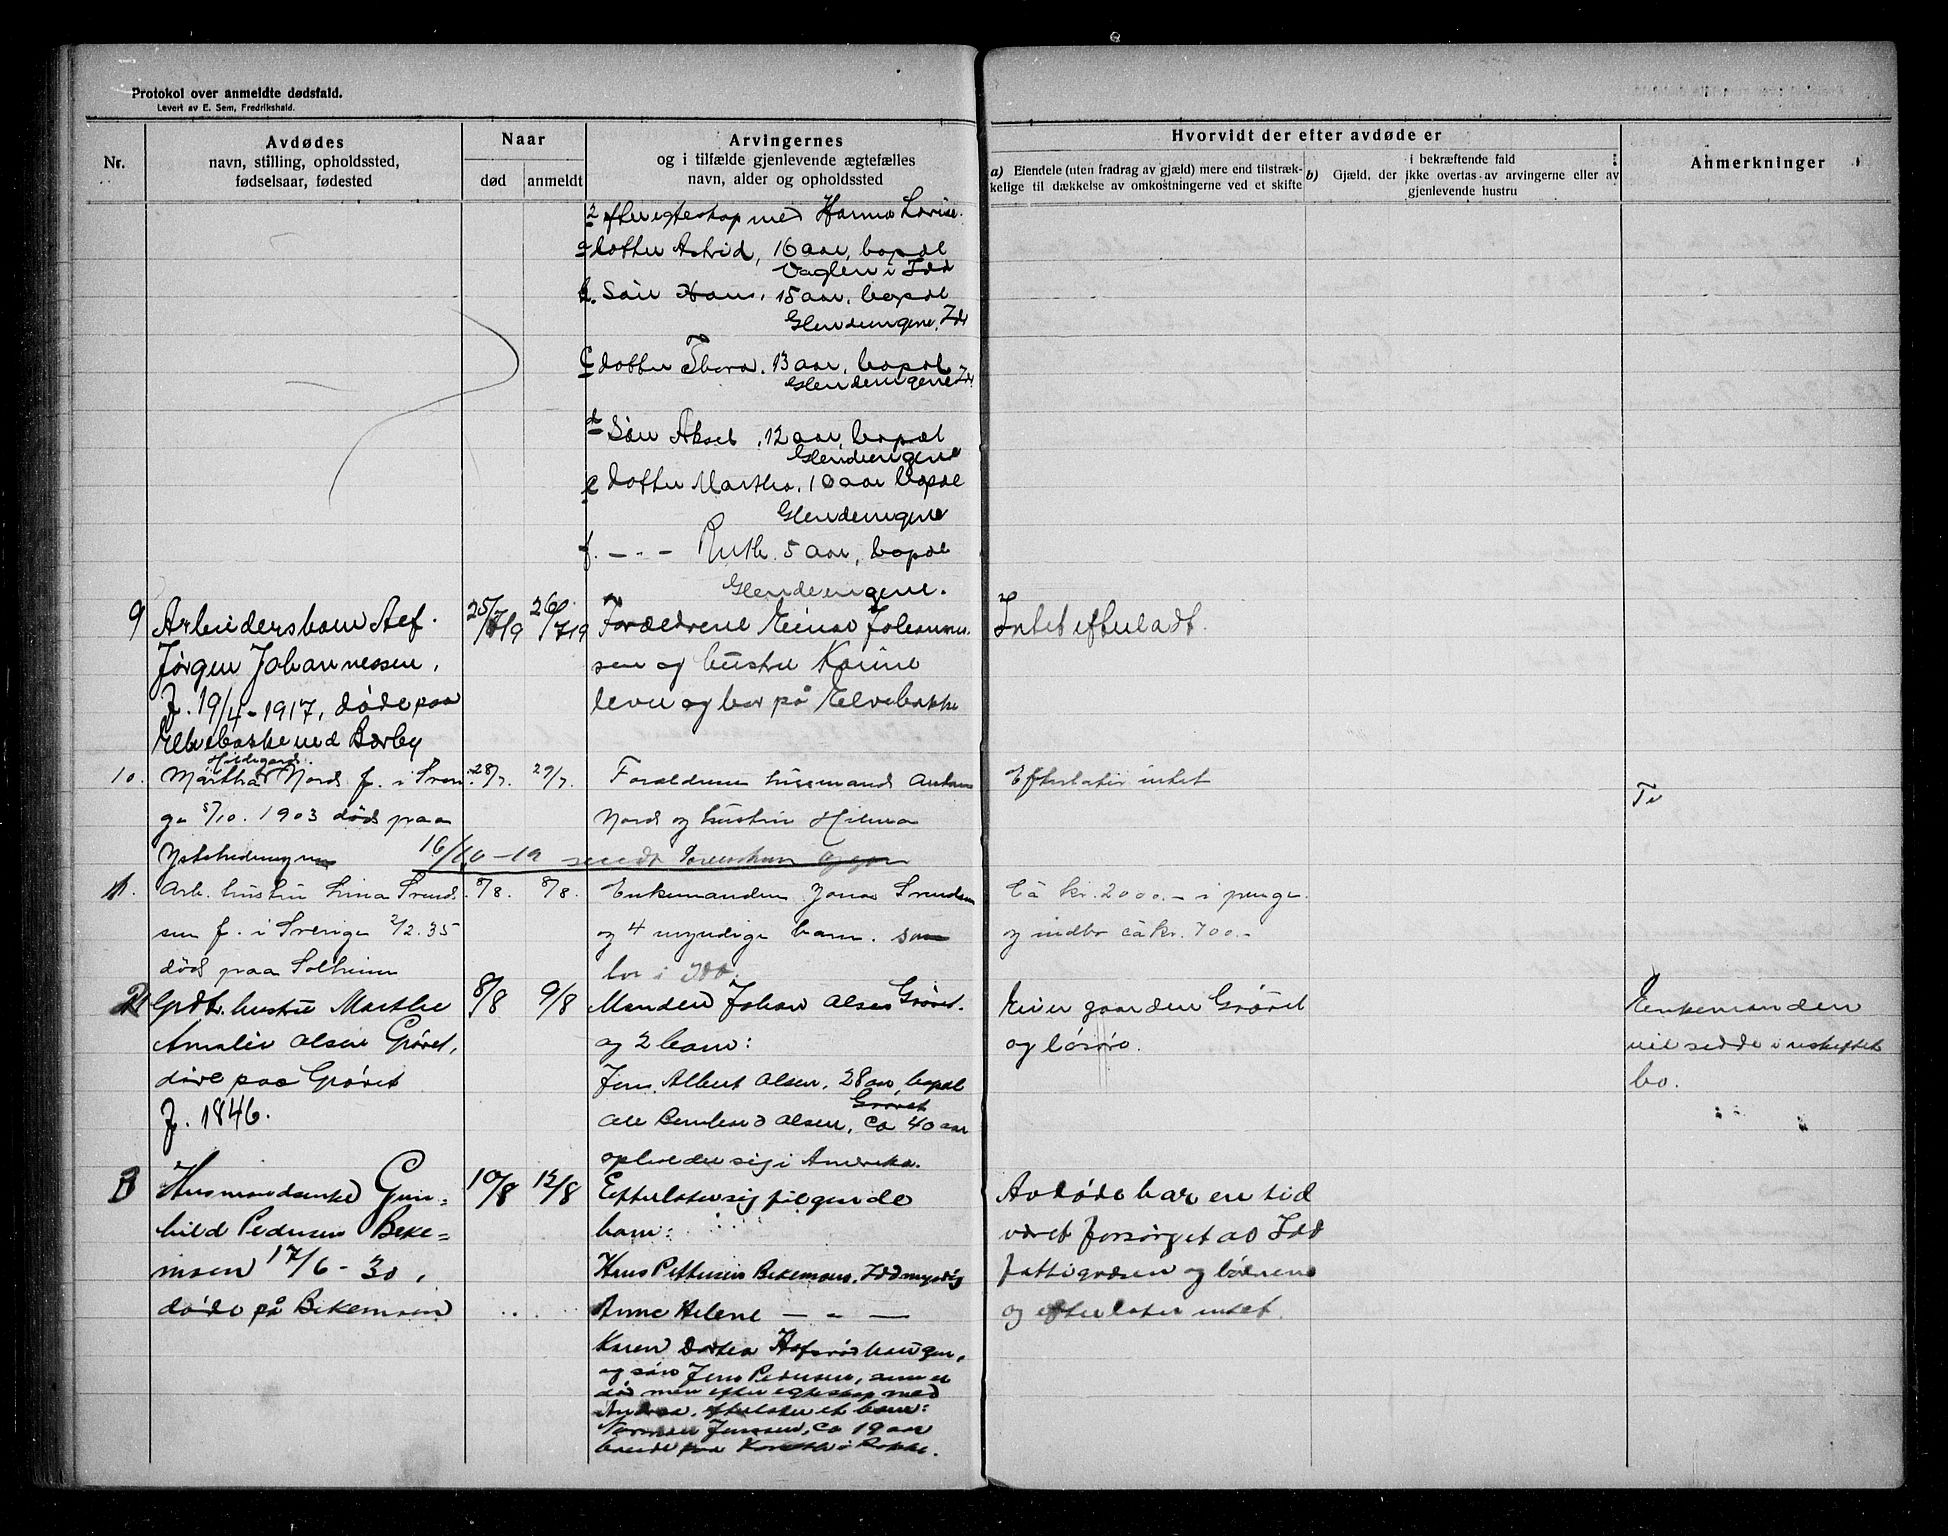 Protokol over anmeldte dødsfald.
Levert av E. Sem, Fredrikshald.
Nr.
Avdødes
navn, stilling, opholdssted,
fødselsaar, fødested
Naar
død
anmeldt
Arvingernes
og i tilfælde gjenlevende ægtefælles
navn, alder og opholdssted
Hvorvidt der efter avdøde er
a) Eiendele (uten fradrag av gjæld) mere end tilstræk-
kelige til dækkelse av omkostningerne ved et skifte
b) Gjæld, der
i bekræftende fald
ikke overtas av arvingerne eller av
gjenlevende hustru
Anmerkninger
2 efter egteskap med Hanna Lovise.
a dotter Astrid, 16 aar, bopæl
Vaglen i Idd
b. Søn Hans, 15 aar, bopæl
Glenderngene, Idd
c dotter Thora, 13 aar, bopæl
Glenderngene Idd
d Søn Aksel, 12 aar, bopæl
Glenderngene
e dotter Martha, 10 aar bopæl
Glenderngene
f. — - — Ruth. 5 aar, bopæl
Glenderngene.
9 Arbeidersbarn Alf
Jørgen Johannessen,
f. 19/4-1917, døde paa
Elvebakke ved Berby
25/7 19
26/7 19
Forældrene Einar Johannes-
sen og hustru Karine
lever og bor på Elvebakke
Intet efterladt.
10. Martha Hildegard Nord f. i Sveri-
ge 5/10. 1903 død paa
28/7.
29/7.
Forældrene husmand Anton
Nord og hustru Hilma
Efterlater intet
Te
16/10-19 sendt
11. Arb. hustru Lina Svend-
sen f. i Sverige 2/2.35
død paa Solheim
8/8.
8/8.
Enkemanden Jonas Svendsen
og 4 myndige barn. som
bor i Idd.
Ca kr. 2000.- i penge
og indbo ca kr. 700.-
12 Grdb. hustru Marthe
Amalie Olsen Grøvet,
døde paa Grøvet
f. 1846.
8/8
9/8
Manden Johan Olsen Grøvet.
og 2 barn:
Jens Albert Olsen, 28 aar, bopæl
Grøvet
Ole Bernhard Olsen, ca 40 aar
opholder sig i Amerika.
Eier gaarden Grøvet
og løsøre.
Enkemanden
vil sidde i uskiftet
bo.
13 Husmandsenke Gun-
hild Pedersen Beke-
moen 17/6-30,
døde på Bekemoen
10/8
12/8
Efterlater sig følgende
barn:
Hans Pettersen Bekemoen, Idd myndig
Anne Helene — - —
Karen Dortea Hofsrødhaugen,
og søn Jens Pedersen, som er
død men efter egteskap med
Andrea, efterlater et barn:
Norman Jensen, ca 19 aar
boende paa i Rokke.
Avdøde har en tid
været forsørget av Idd
fattigvæsen og børnene
og efterlater intet.